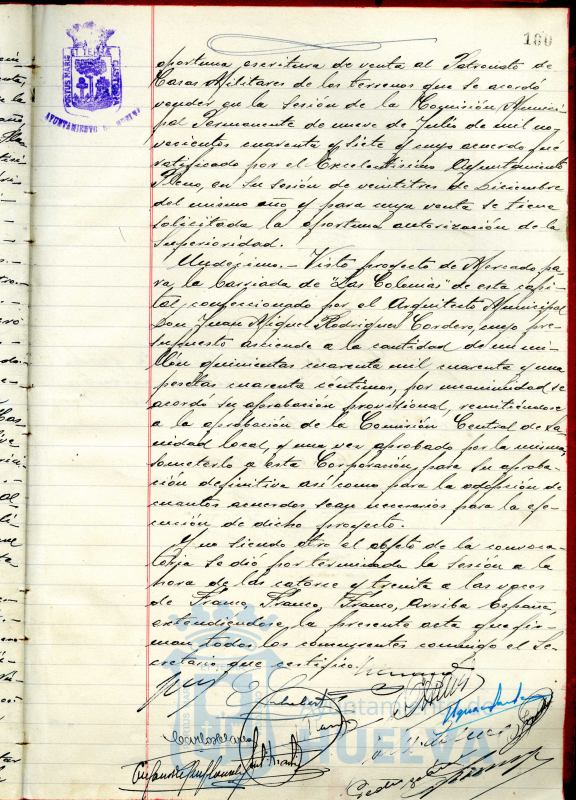 180
PORTUS MARIS ET TERRAE CUSTODIA
AYUNTAMIENTO DE HUELVA
oportuna escritura de venta al Patronato de
Casas Militares de los terrenos que se acordó
vender en la sesión de la Comisión Munici-
pal Permanente de nueve de Julio de mil no-
vecientos cuarenta y siete y cuyo acuerdo fué
ratificado por el Excelentísimo Ayuntamiento
Pleno, en su sesión de veintitres de Diciembre
del mismo año y para cuya venta se tiene
solicitada la oportuna autorización de la
Superioridad.
Undécimo.- Visto proyecto de Mercado pa-
ra la barriada de "Las Colonias" de esta capi-
tal confeccionado por el Arquitecto Municipal
Don Juan Miguel Rodriguez Cordero, cuyo pre-
supuesto asciende a la cantidad de un mi-
llón quinientas cuarenta mil cuarenta y una
pesetas cuarenta centimos, por unanimidad se
acordó su aprobación provisional, remitiendose
a la aprobación de la Comisión Central de Sa-
nidad local, y una vez aprobado por la misma,
someterlo a esta Corporación, para su aproba-
ción definitiva así como para la adopción de
cuantos acuerdos sean necesarios para la eje-
cución de dicho proyecto.
Y no siendo otro el objeto de la convoca-
toria se dió por terminada la sesión a la
hora de las catorce y treinta a las voces
de Franco, Franco, Franco, Arriba España,
extendiendose la presente acta que fir-
man todos los concurrentes conmigo el Se-
cretario que certifico.
Ayuntamiento de
HUELVA